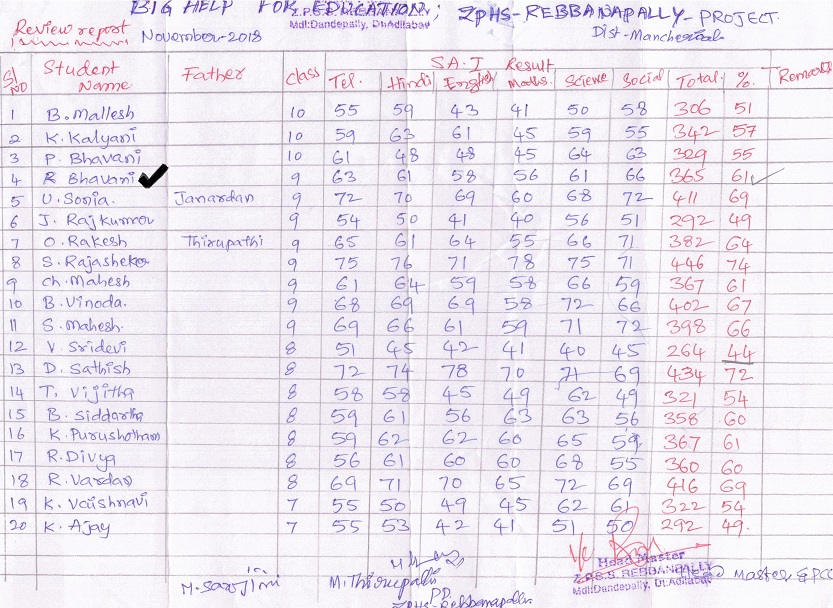 BIG HELP FOR EDUCATION; ZPHS-REBBANAPALLY-PROJECT.
Mdl:Dandepally, Dt.Adilabad
Review report November-2018 Dist-Mancherial
S.A.I Result
Sl NO Student Name Father class Tel. Hindi English Maths. Science Social Total %. Remarks
1 B.Mallesh 10 55 59 43 41 50 58 306 51
2 K.Kalyani 10 59 63 61 45 59 55 342 57
3 P.Bhavani 10 61 48 48 45 64 63 329 55
4 R Bhavani 9 63 61 58 56 61 66 365 61
5 U.Sonia. Janardan 9 72 70 69 60 68 72 411 69
6 J.Rajkumar 9 54 50 41 40 56 51 292 49
7 O.Rakesh Thirupathi 9 65 61 64 55 66 71 382 64
8 S.Rajasheker 9 75 76 71 78 75 71 446 74
9 Ch.Mahesh 9 61 64 59 58 66 59 367 61
10 B.Vinoda. 9 68 69 69 58 72 66 402 67
11 S.Mahesh. 9 69 66 61 59 71 72 398 66
12 V.Sridevi 8 51 45 42 41 40 45 264 44
13 D.Sathish 8 72 74 78 70 71 69 434 72
14 T.Vijitha 8 58 58 45 49 62 49 321 54
15 B.Siddartha 8 59 61 56 63 63 56 358 60
16 K.Purushotham 8 59 62 62 60 65 59 367 61
17 R.Divya 8 56 61 60 60 68 55 360 60
18 R.Vardan 8 69 71 70 65 72 69 416 69
19 K.Vaishnavi 7 55 50 49 45 62 61 322 54
20 K.Ajay 7 55 53 42 41 51 50 292 49.
Head Master
Z.P.S.S. REBBANPALLY
Mdl:Dandepally, Dt.Adilabad
M.Sarojini M.Thirupathi Master &PCC
P.D.
ZPHS-Rebbanapally